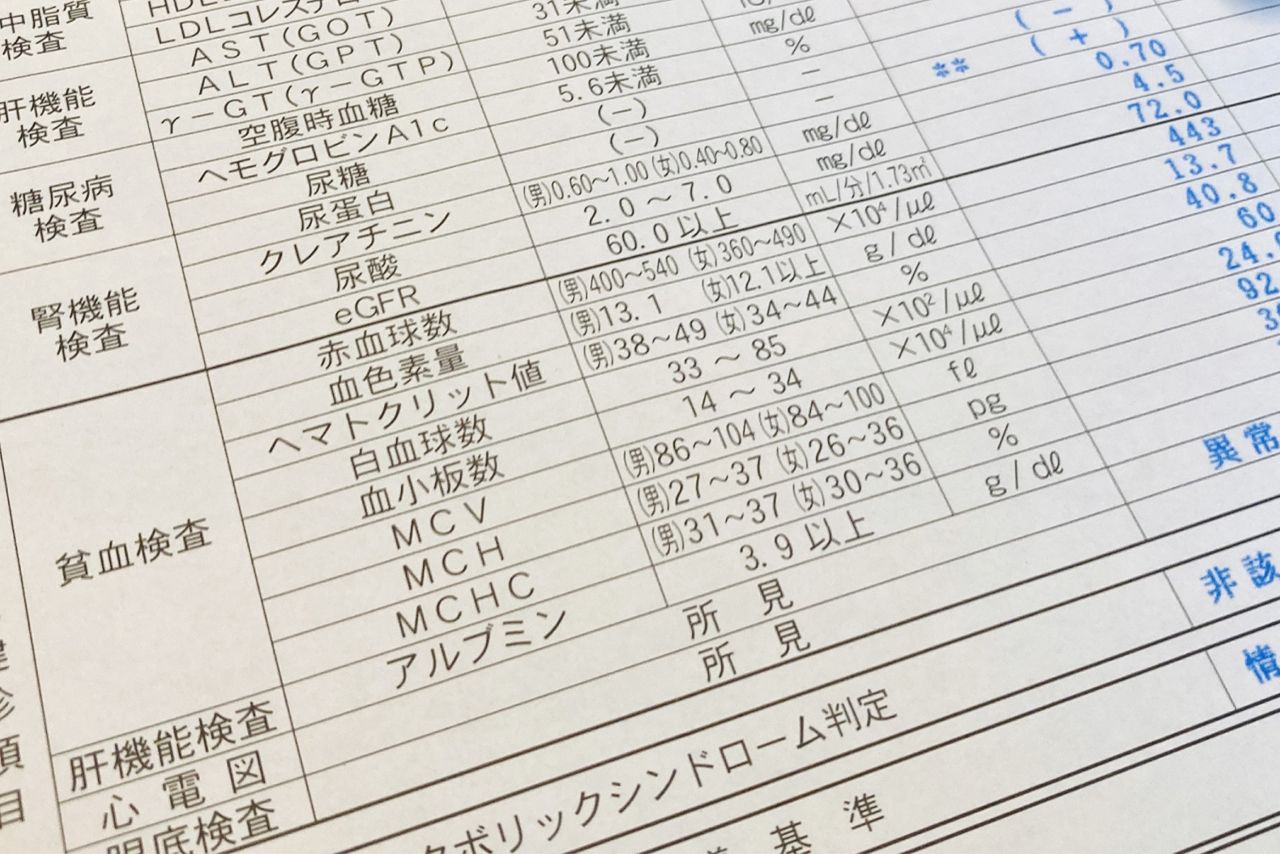 中脂質
検査
HDL
LDLコレステロ
31未満
AST(GOT)
51未満
mg/dℓ
(-)
ALT(GPT)
100未満
%
** (+)
肝機能
検査
γ-GT(γ-GTP)
5.6未満
-
0.70
空腹時血糖
(-)
-
4.5
ヘモグロビンA1c
(-)
mg/dℓ
72.0
糖尿病
検査
尿糖
(男)0.60~1.00(女)0.40~0.80
mg/dℓ
443
尿蛋白
2.0~7.0
mL/分/1.73㎡
13.7
クレアチニン
60.0以上
×10⁴/μℓ
40.8
尿酸
(男)400~540 (女)360~490
g/dℓ
60
腎機能
検査
eGFR
(男)13.1 (女)12.1以上
%
24.
赤血球数
(男)38~49 (女)34~44
×10²/μℓ
92.
血色素量
33~85
×10⁴/μℓ
3
ヘマトクリット値
14~34
fℓ
白血球数
(男)86~104(女)84~100
pg
血小板数
(男)27~37 (女)26~36
%
異常
貧血検査
MCV
(男)31~37 (女)30~36
g/dℓ
MCH
3.9以上
MCHC
所見
非該
アルブミン
所見
情
肝機能検査
心電図
眼底検査
項
目
ボリックシンドローム判定
基準